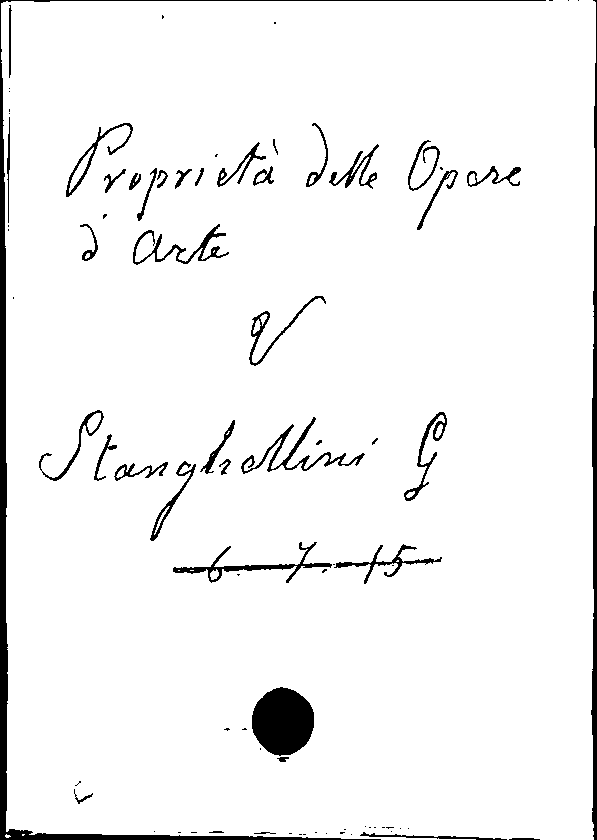 Proprietà delle Opere
d'Arte
V
Stanghellini G
6. 7. 15